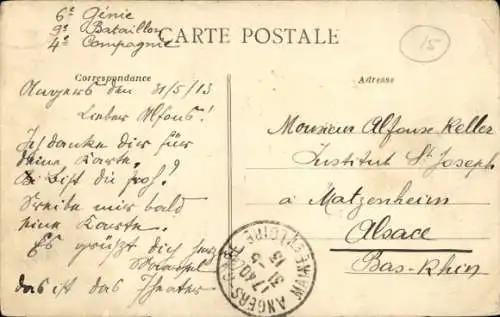 6e Génie
9e Bataillon
4e Compagnie
CARTE POSTALE
15
Correspondance
Adresse
Angers den 31/5/13
Lieber Alfons!
Ich danke dir für
deine Karte.
Bist du froh?
Schreibe mir bald
eine Karte.
Es grüßt dich
das ist das Theater
Monsieur Alfonse Keller
Institut St Joseph
à Matzenheim
Alsace
Bas-Rhin
ANGERS
MAINE-ET-LOIRE
17 40
31 -5